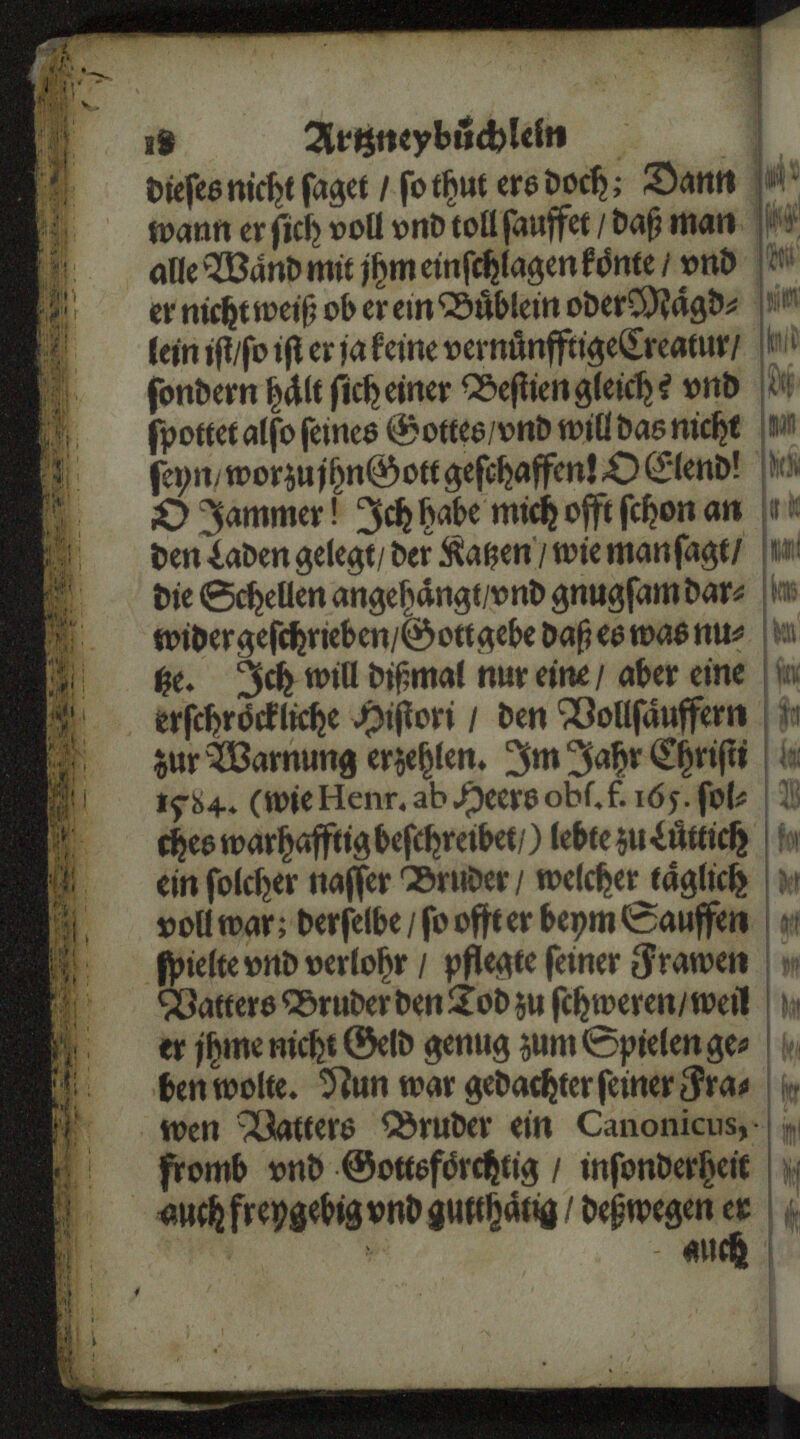 18 Artzneybuͤchlein
dieſes nicht ſaget / ſo thut ers doch; Dann
wann er ſich voll vnd toll ſauffet / daß man
alle Waͤnd mit jhm einſchlagen koͤnte / vnd
er nicht weiß ob er ein Buͤblein oder Maͤgd⸗
lein iſt / ſo iſt er ja keine vernuͤnfftige Creatur /
ſondern haͤlt ſich einer Beſtien gleich? vnd
ſpottet alſo ſeines Gottes / vnd will das nicht
ſeyn / worzu jhn Gott geſchaffen! O Elend!
O Jammer! Ich habe mich offt ſchon an
den Laden gelegt / der Katzen / wie man ſagt /
die Schellen angehaͤngt / vnd gnugſam dar⸗
wider geſchrieben / Gott gebe daß es was nu⸗
tze. Ich will dißmal nur eine / aber eine
erſchroͤckliche Hiſtori / den Vollſaͤuffern
zur Warnung erzehlen. Im Jahr Chriſti
1584. (wie Henr. ab Heers obſ. f. 165. ſol⸗
ches warhafftig beſchreibet /) lebte zu Luͤttich
ein ſolcher naſſer Bruder / welcher taͤglich
voll war; derſelbe / ſo offt er beym Sauffen
ſpielte vnd verlohr / pflegte ſeiner Frawen
Vatters Bruder den Tod zu ſchweren / weil
er jhme nicht Geld genug zum Spielen ge⸗
ben wolte. Nun war gedachter ſeiner Fra⸗
wen Vatters Bruder ein Canonicus,
fromb vnd Gottsfoͤrchtig / inſonderheit
auch freygebig vnd gutthaͤtig / deßwegen er
auch